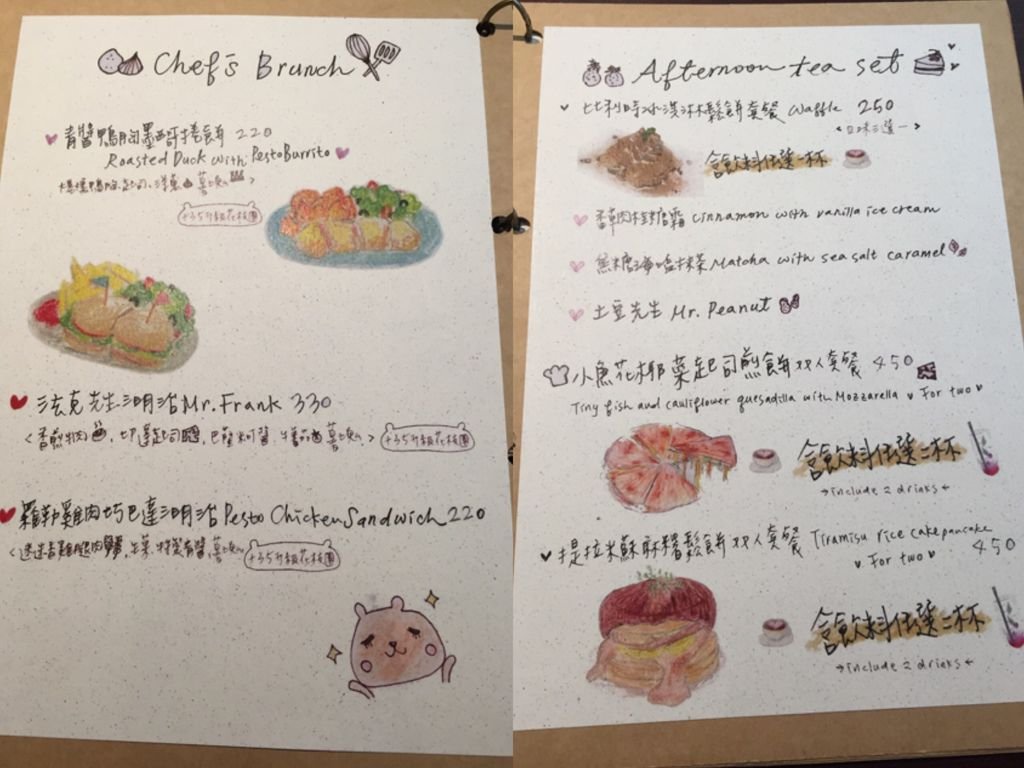 Chef's Brunch
青醬鴨胸墨西哥捲餅 220
Roasted Duck with Pesto Burrito
+35升級花枝圈
法克先生三明治 Mr. Frank 330
+35升級花枝圈
羅勒雞肉巧巴達三明治 Pesto Chicken Sandwich 220
+35升級花枝圈
Afternoon tea set
比利時冰淇淋鬆餅套餐 Waffle 250
<口味三選一>
含飲料任選一杯
香草肉桂糖霜 Cinnamon with vanilla ice cream
焦糖海鹽抹茶 Matcha with sea salt caramel
土豆先生 Mr. Peanut
小魚花椰菜起司煎餅双人套餐 450
Tiny fish and cauliflower quesadilla with Mozzarella For two
含飲料任選二杯
include 2 drinks
提拉米蘇麻糬鬆餅双人套餐 Tiramisu rice cake pancake
For two 450
含飲料任選二杯
include 2 drinks